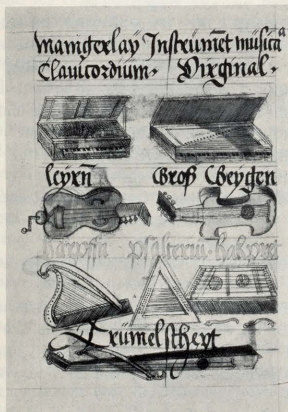 Mamgerlay Instrumēt musica
Clavicordium. Virginal.
leyrn̄ Groß Geygen
Harpffn psalteriū hakpret
Trumelscheyt